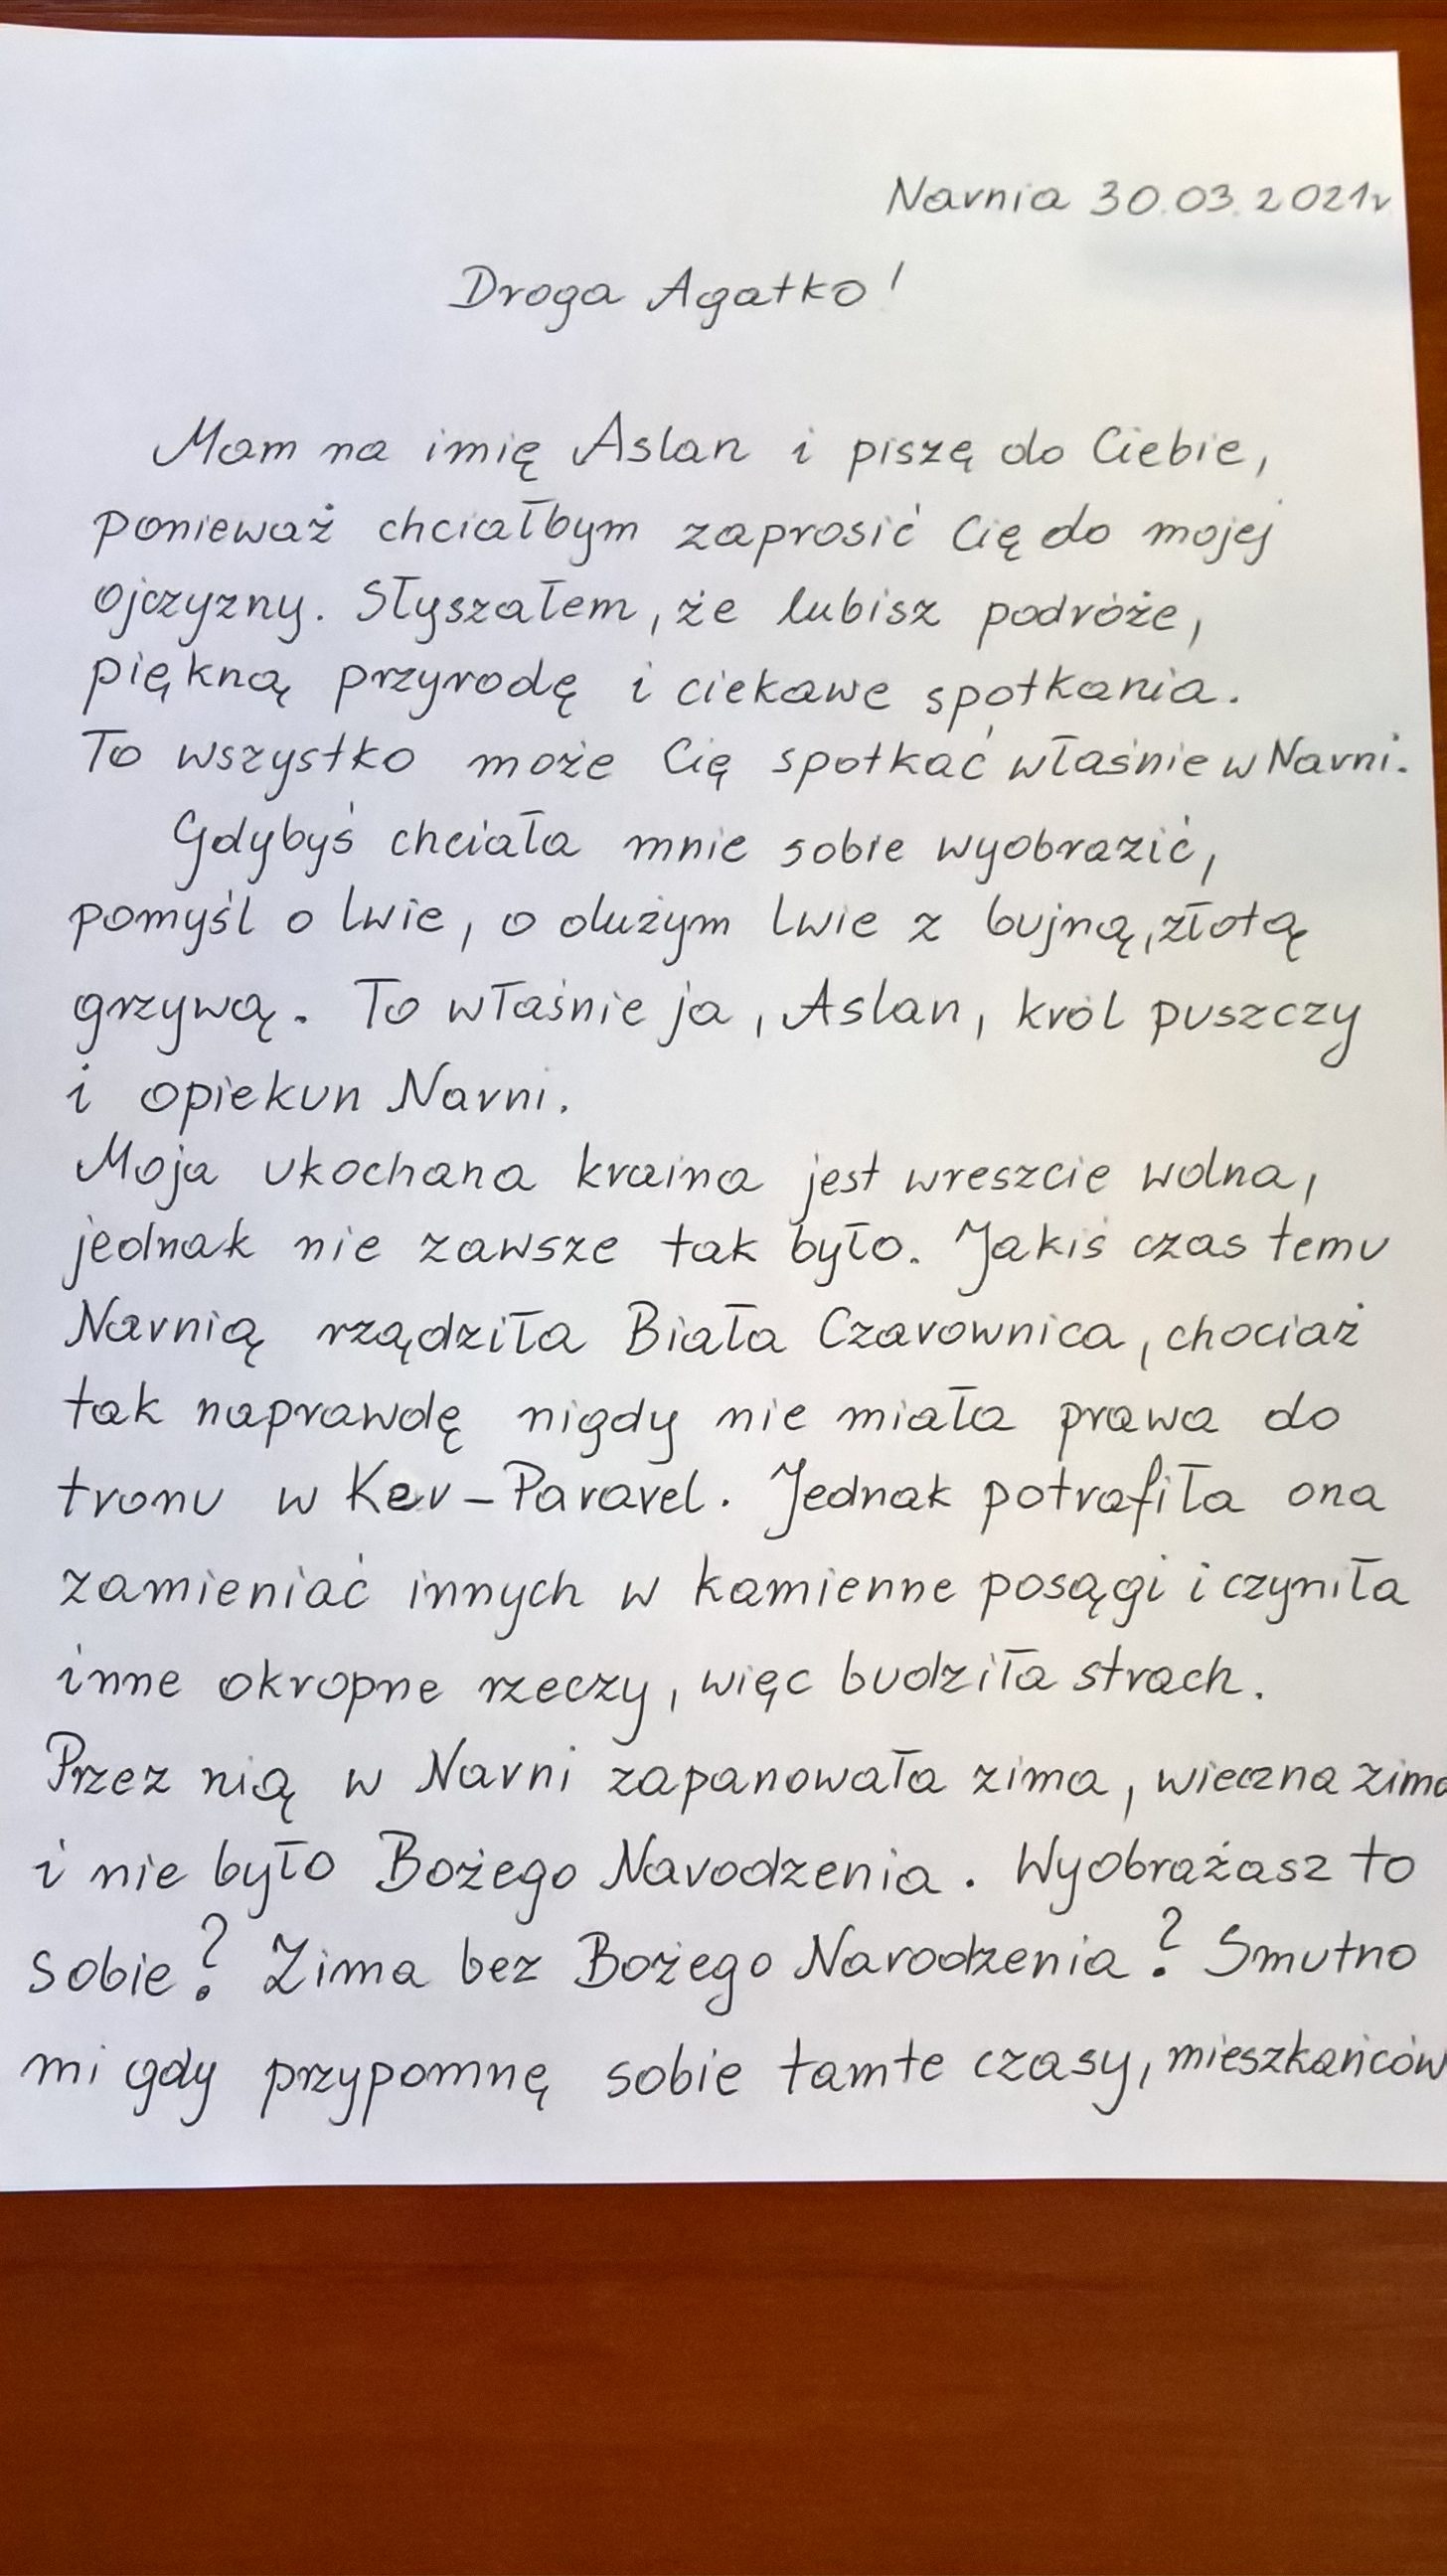 Narnia 30.03.2021r
Droga Agatko!
Mam na imię Aslan i piszę do Ciebie,
ponieważ chciałbym zaprosić Cię do mojej
ojczyzny. Słyszałem, że lubisz podróże,
piękną przyrodę i ciekawe spotkania.
To wszystko może Cię spotkać właśnie w Narni.
Gdybyś chciała mnie sobie wyobrazić,
pomyśl o lwie, o dużym lwie z bujną, złotą
grzywą. To właśnie ja, Aslan, król puszczy
i opiekun Narni.
Moja ukochana kraina jest wreszcie wolna,
jednak nie zawsze tak było. Jakiś czas temu
Narnią rządziła Biała Czarownica, chociaż
tak naprawdę nigdy nie miała prawa do
tronu w Ker-Paravel. Jednak potrafiła ona
zamieniać innych w kamienne posągi i czyniła
inne okropne rzeczy, więc budziła strach.
Przez nią w Narni zapanowała zima, wieczna zima
i nie było Bożego Narodzenia. Wyobrażasz to
sobie? Zima bez Bożego Narodzenia? Smutno
mi gdy przypomnę sobie tamte czasy, mieszkańców